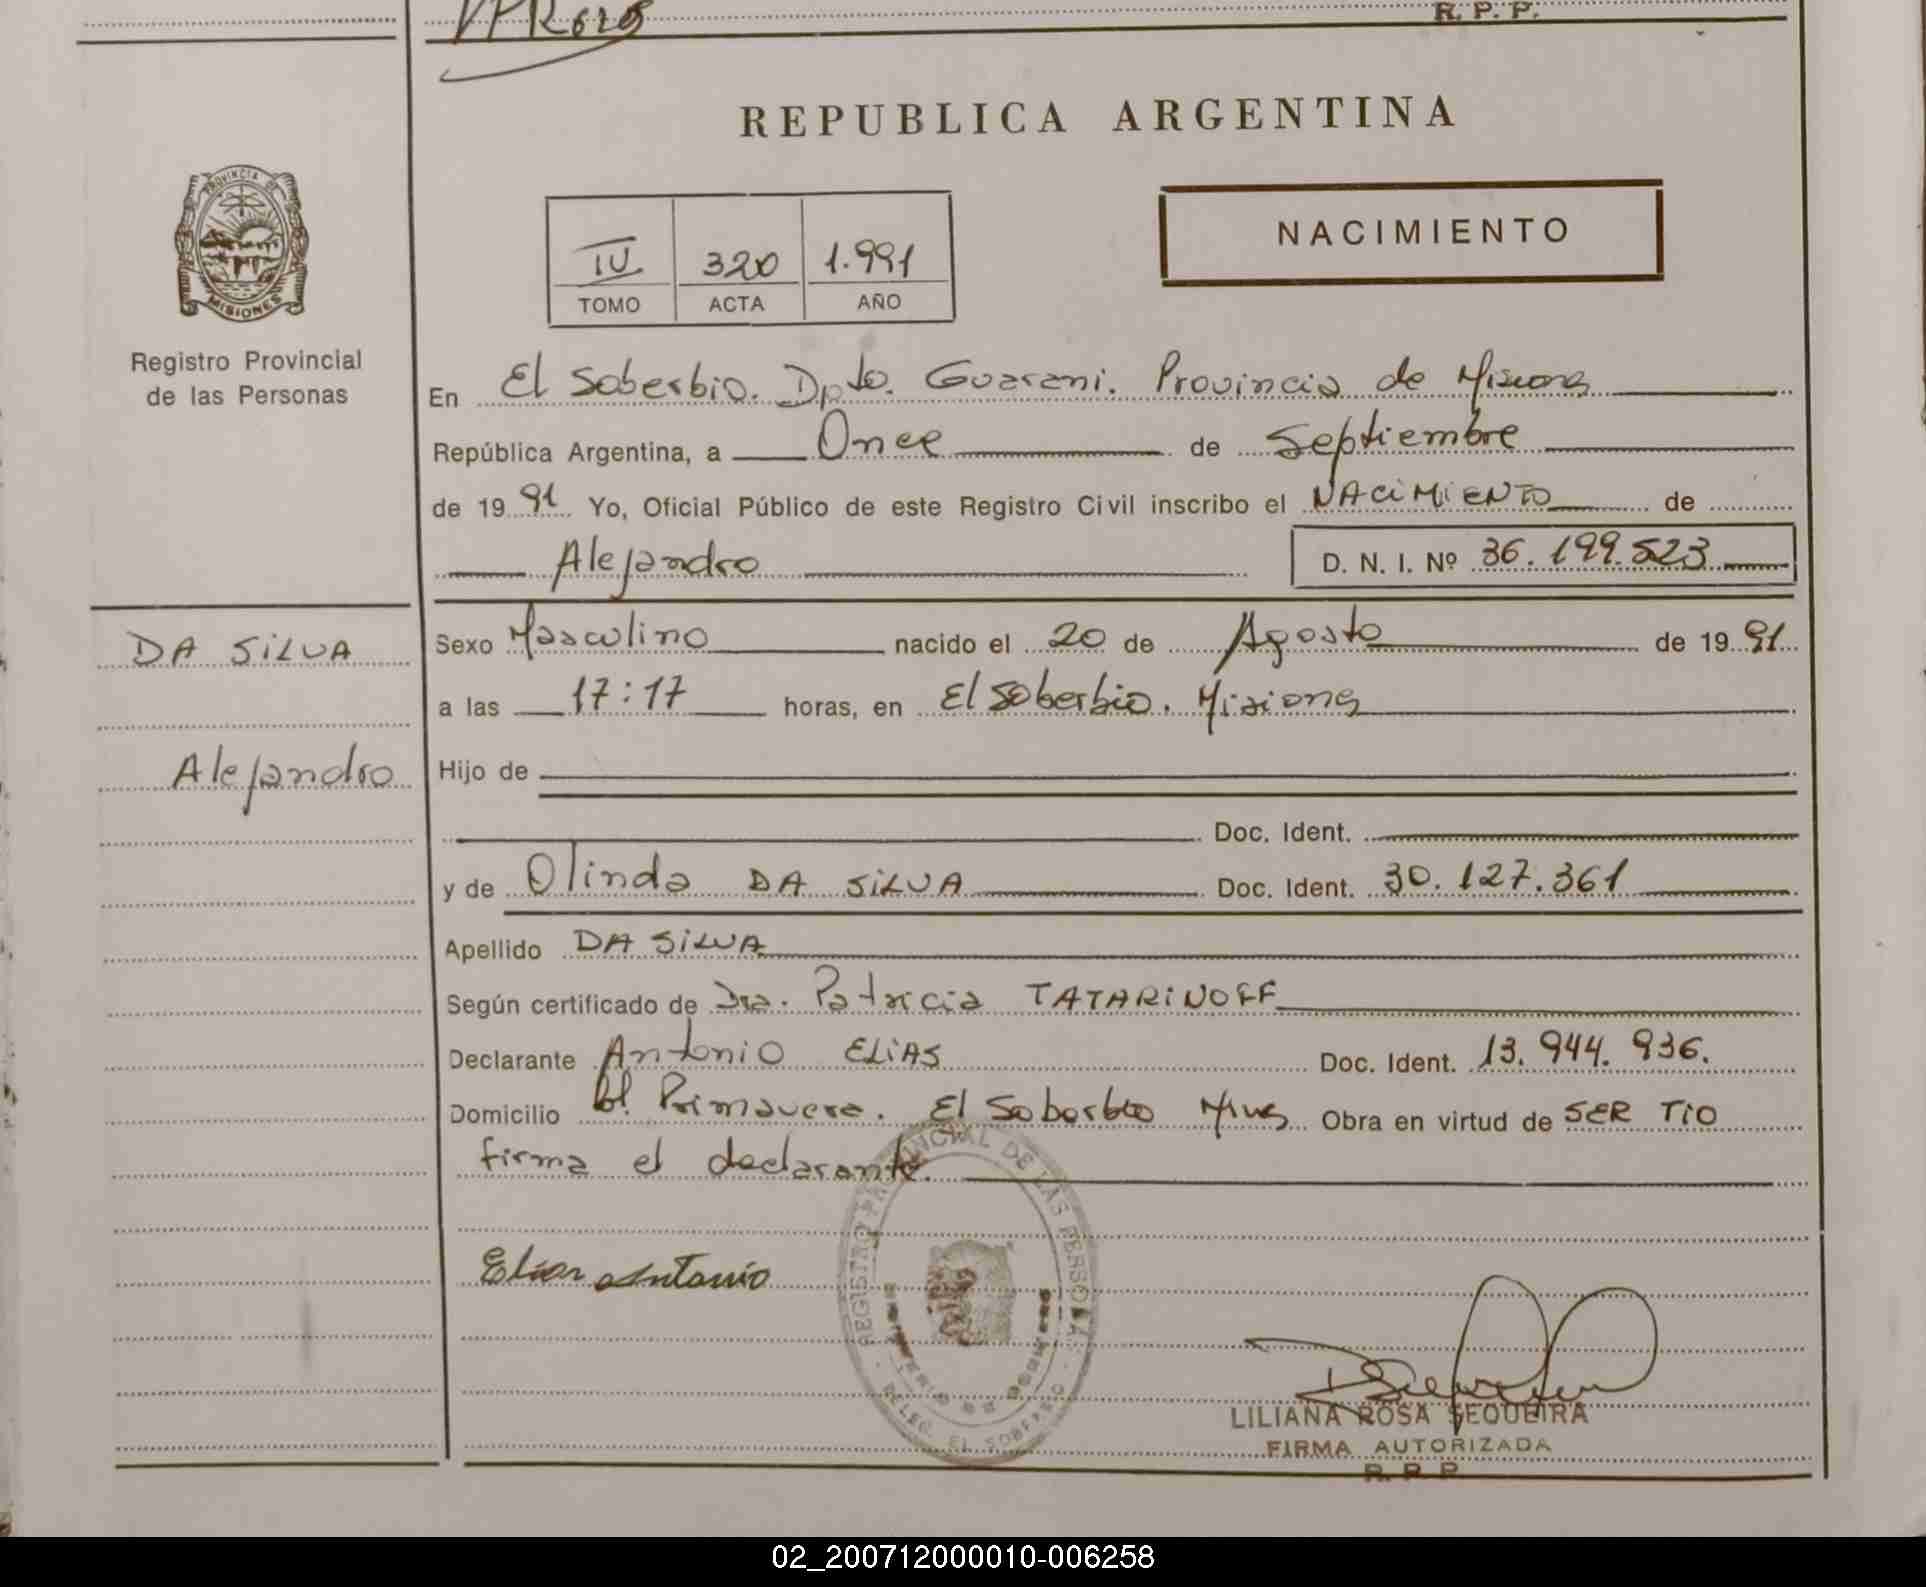 R. P. P.
REPUBLICA ARGENTINA
PROVINCIA DE
MISIONES
Registro Provincial
de las Personas
NACIMIENTO
IV 320 1.991
TOMO ACTA AÑO
En El Soberbio. Dpto. Guarani. Provincia de Misiones
República Argentina, a Once de Septiembre
de 19 91 Yo, Oficial Público de este Registro Civil inscribo el NACIMIENTO de
Alejandro D. N. I. Nº 36.199.523
DA SILVA
Alejandro
Sexo Masculino nacido el 20 de Agosto de 19 91
a las 17:17 horas, en El Soberbio. Misiones
Hijo de
Doc. Ident.
y de Olinda DA SILVA Doc. Ident. 30.127.361
Apellido DA SILVA
Según certificado de Dra. Patricia TATARINOFF
Declarante Antonio ELIAS Doc. Ident. 13.944.936.
Domicilio Primavera. El Soberbio Mnes Obra en virtud de SER TIO
firma el declarante.
Elias Antonio
REGISTRO PROVINCIAL DE LAS PERSONAS
DELEG. EL SOBERBIO
LILIANA ROSA SEQUEIRA
FIRMA AUTORIZADA
R. P. P.
02_200712000010-006258